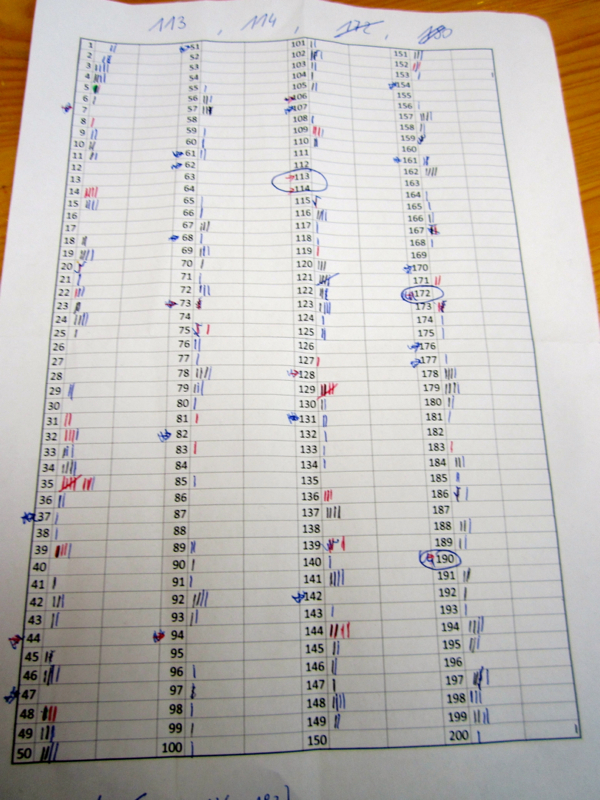 113, 114, 172, 180
1 51 101 151
2 52 102 152
3 53 103 153
4 54 104 154
5 55 105 155
6 56 106 156
7 57 107 157
8 58 108 158
9 59 109 159
10 60 110 160
11 61 111 161
12 62 112 162
13 63 113 163
14 64 114 164
15 65 115 165
16 66 116 166
17 67 117 167
18 68 118 168
19 69 119 169
20 70 120 170
21 71 121 171
22 72 122 172
23 73 123 173
24 74 124 174
25 75 125 175
26 76 126 176
27 77 127 177
28 78 128 178
29 79 129 179
30 80 130 180
31 81 131 181
32 82 132 182
33 83 133 183
34 84 134 184
35 85 135 185
36 86 136 186
37 87 137 187
38 88 138 188
39 89 139 189
40 90 140 190
41 91 141 191
42 92 142 192
43 93 143 193
44 94 144 194
45 95 145 195
46 96 146 196
47 97 147 197
48 98 148 198
49 99 149 199
50 100 150 200